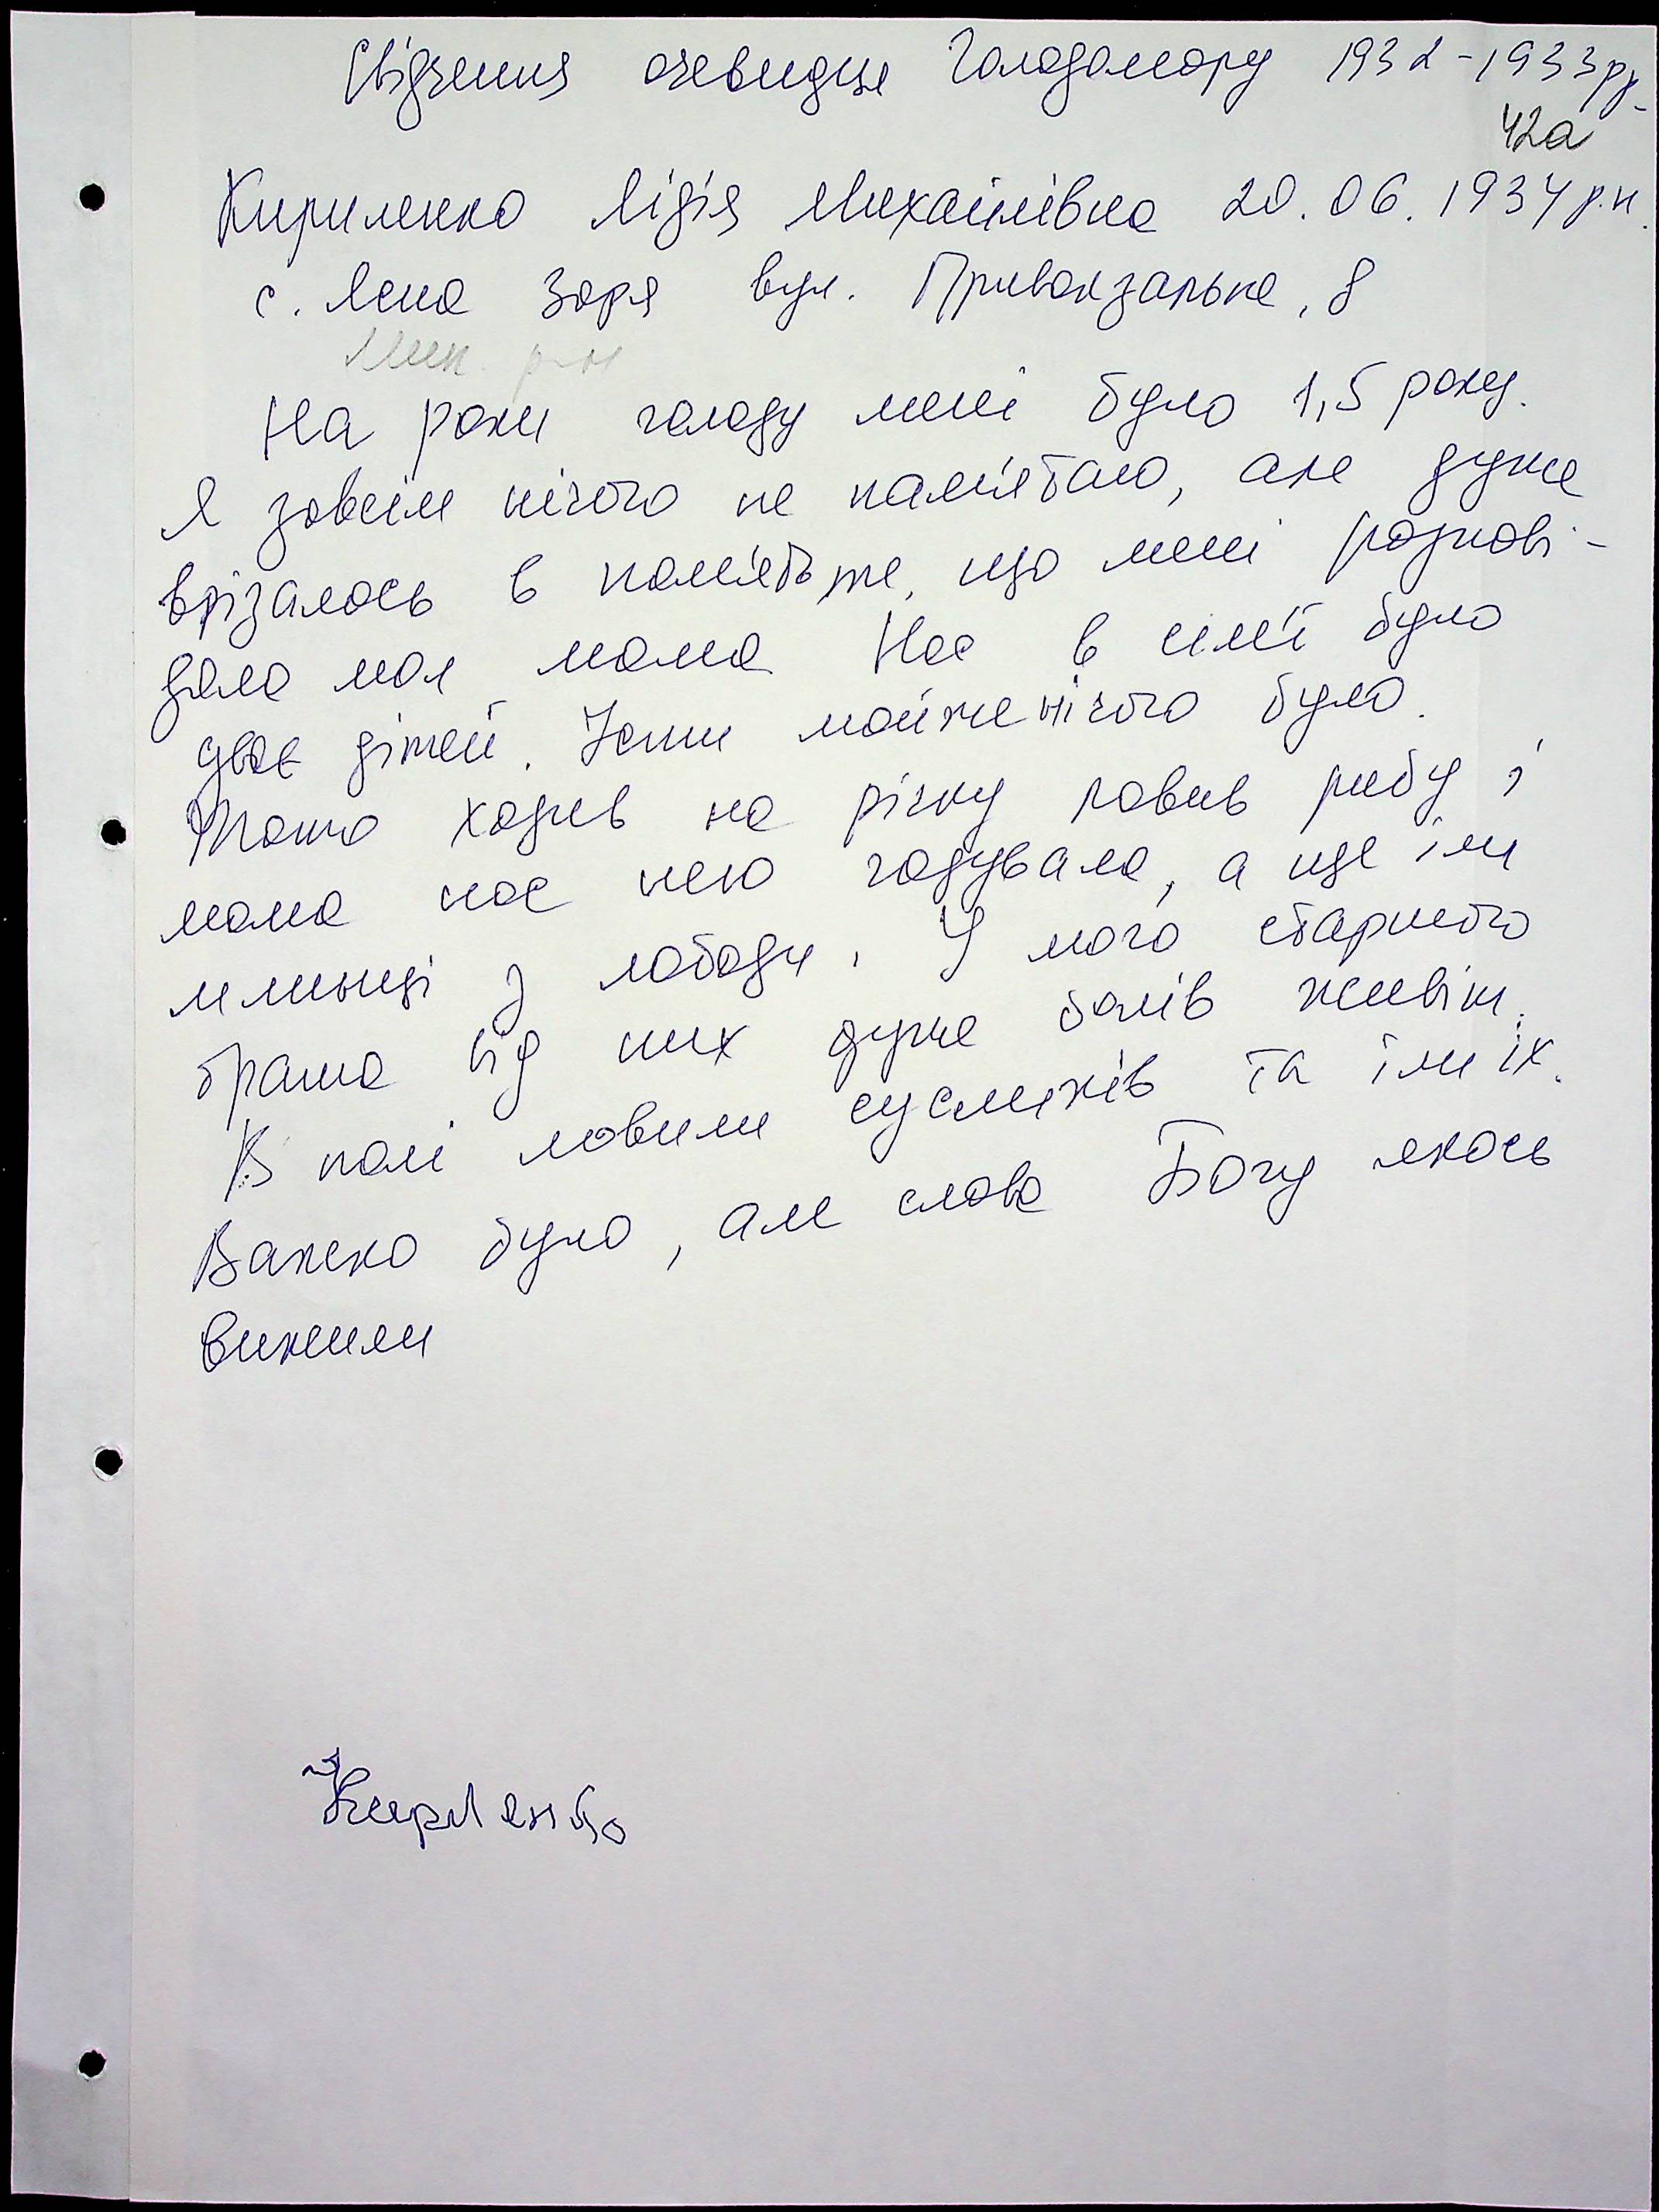 Свідчення очевидця Голодомору 1932-1933рр.
42а
Кириленко Лідія Михайлівна 20.06.1934р.н.
с. Ясна Зоря вул. Привокзальна, 8
Мик. р-н
На роки голоду мені було 1,5 року.
Я зовсім нічого не пам'ятаю, але дуже
врізалось в пам'ять те, що мені розпові-
дала моя мама Нас в сім'ї було
двоє дітей. Їсти майже нічого було.
Тато ходив на річку ловив рибу і
мама нас нею годувала, а ще їли
млинці з лободи. У мого старшого
брата від них дуже болів живіт.
В полі ловили сусликів та їли їх.
Важко було, але слава Богу якось
вижили
Кирленко